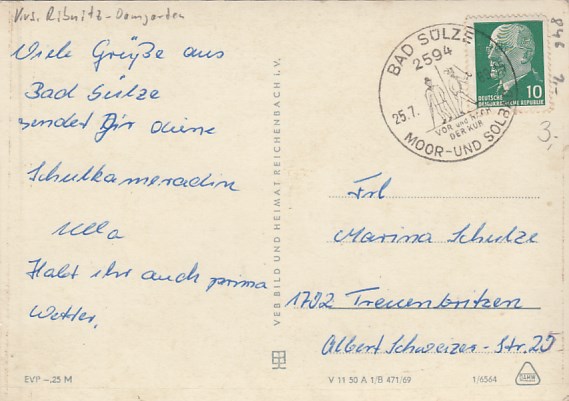 Krs. Ribnitz-Damgarten
Viele Grüße aus
Bad Sülze
sendet Dir deine
Schulkameradin
Ulla
Habt ihr auch prima
Wetter.
VEB BILD UND HEIMAT REICHENBACH i.V.
BAD SÜLZE
2594
25.7.
VOR und NACH
DER KUR
MOOR-UND SOLBAD
DEUTSCHE
DEMOKRATISCHE REPUBLIK
10
846
3,-
Frl
Marina Schulze
1702 Treuenbritzen
Albert Schweizer-Str. 25
EVP –,25 M
V 11 50 A 1/B 471/69
1/6564